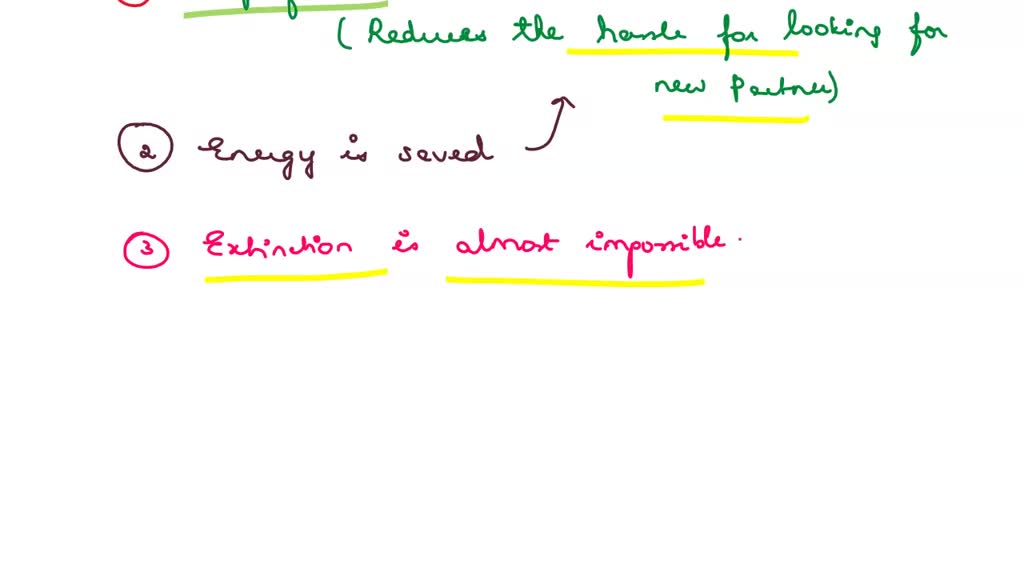 (Reduces the hassle for looking for
new Partner)
2 Energy is saved
3 Extinction is almost impossible.